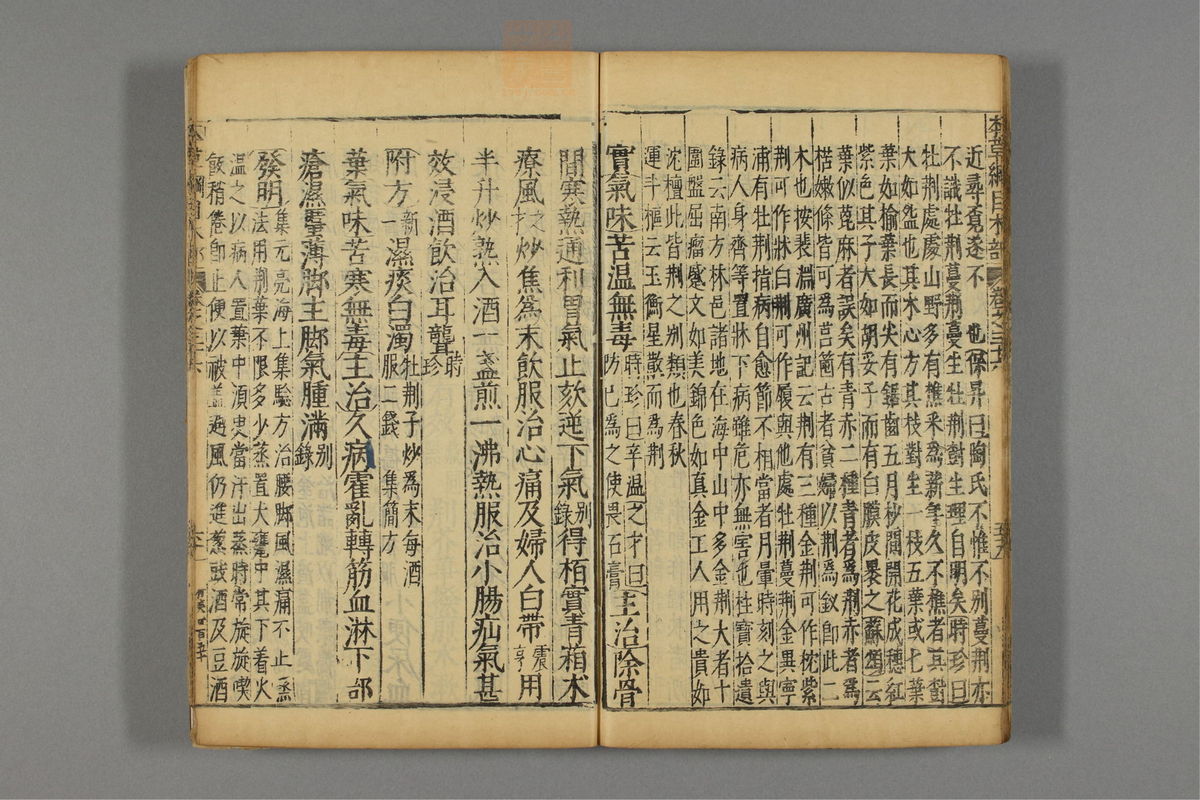 近尋覓遂不
不識牡荊蔓荊蔓生牡荊對生理自明矣時珍曰
也保昇曰陶氏不惟不别蔓荊亦
牡荊處處山野多有樵采爲薪年久不樵者其對
大如盌也其木心方其枝對生一枝五葉或七葉
葉如榆葉長而尖有鋸齒五月杪間開花成穗紅
紫色其子大如胡荽子而有白膜皮裹之蘇頌云
葉似蓖麻者誤矣有青赤二種青者爲荊赤者爲
楛嫩條皆可爲莒箘古者貧婦以荊爲釵即此二
木也按裴淵廣州記云荊有三種金荊可作枕紫
荊可作牀白荊可作履與他處牡荊蔓荊全異寧
浦有牡荊指病自愈節不相當者月暈時刻之與
病人身齊等置牀下病雖危亦無害也杜寶拾遺
錄云南方林邑諸地在海中山中多金荊大者十
圍盤屈瘤蹙文如美錦色如真金工人用之貴如
沈檀此皆荊之别類也春秋
運斗樞云玉衡星散而爲荊
實氣味苦温無毒
時珍曰辛温之才曰
防已爲之使畏石膏
主治除骨
間寒熱通利胃氣止欬逆下氣别錄得栢實青葙术
療風之才炒焦爲末飲服治心痛及婦人白帶震亨用
半升炒熱入酒一盞煎一沸熱服治小腸疝氣甚
效浸酒飲治耳聾時珍
附方新一濕痰白濁
牡荊子炒爲末每酒
服二錢 集簡方
葉氣味苦寒無毒主治久病霍亂轉筋血淋下部
瘡濕䘌薄脚主脚氣腫滿别錄
發明
集元亮海上集驗方治腰脚風濕痛不止蒸
法用荊葉不限多少蒸置大甕中其下着火
温之以病人置葉中須臾當汗出蒸時常旋旋喫
飯稍倦即止便以被蓋避風仍進葱豉酒及豆酒